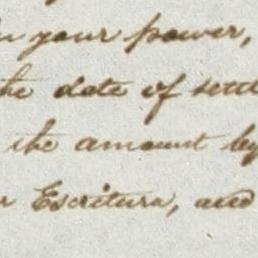 in your power,
the date of settl
the amount by
r Escritura, and